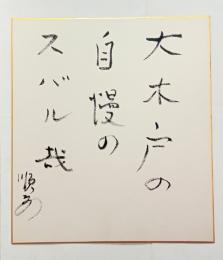 大木戸の
自慢の
スバル哉